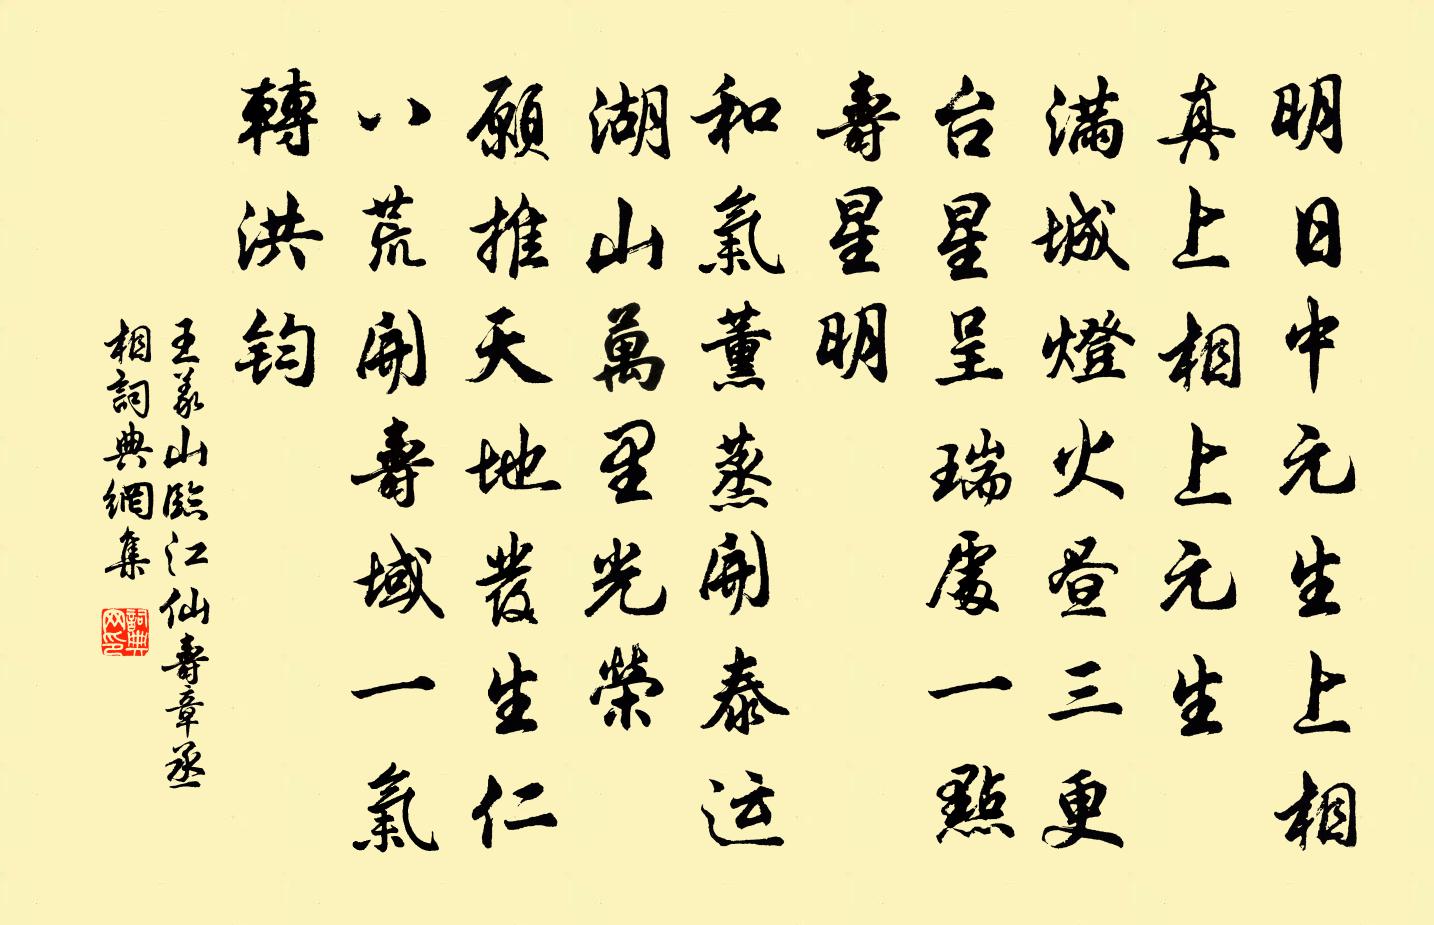 明日中元生上相
真上相上元生
满城燈火昼三更
台星呈瑞處一點
壽星明
和氣薰蒸開泰运
湖山萬里光榮
願推天地發生仁
八荒開壽域一氣
轉洪鈞
王義山臨江仙壽章丞
相詞典網集
詞典网印